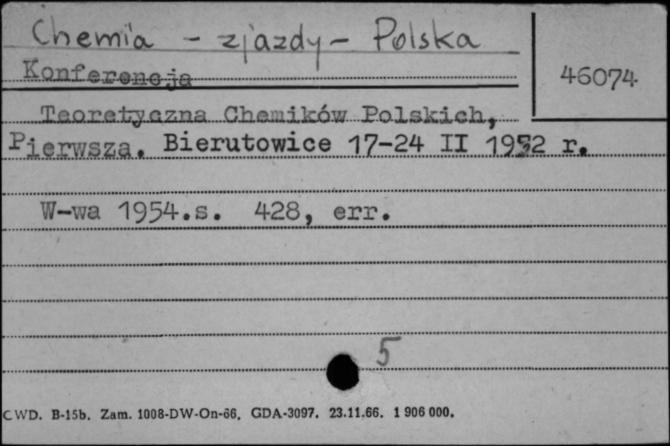 Chemia - zjazdy - Polska
Konferencja
46074
Teoretyczna Chemików Polskich,
Pierwsza. Bierutowice 17-24 II 1952 r.
W-wa 1954.s. 428, err.
5
CWD. B-15b. Zam. 1008-DW-On-66. GDA-3097. 23.11.66. 1 906 000.